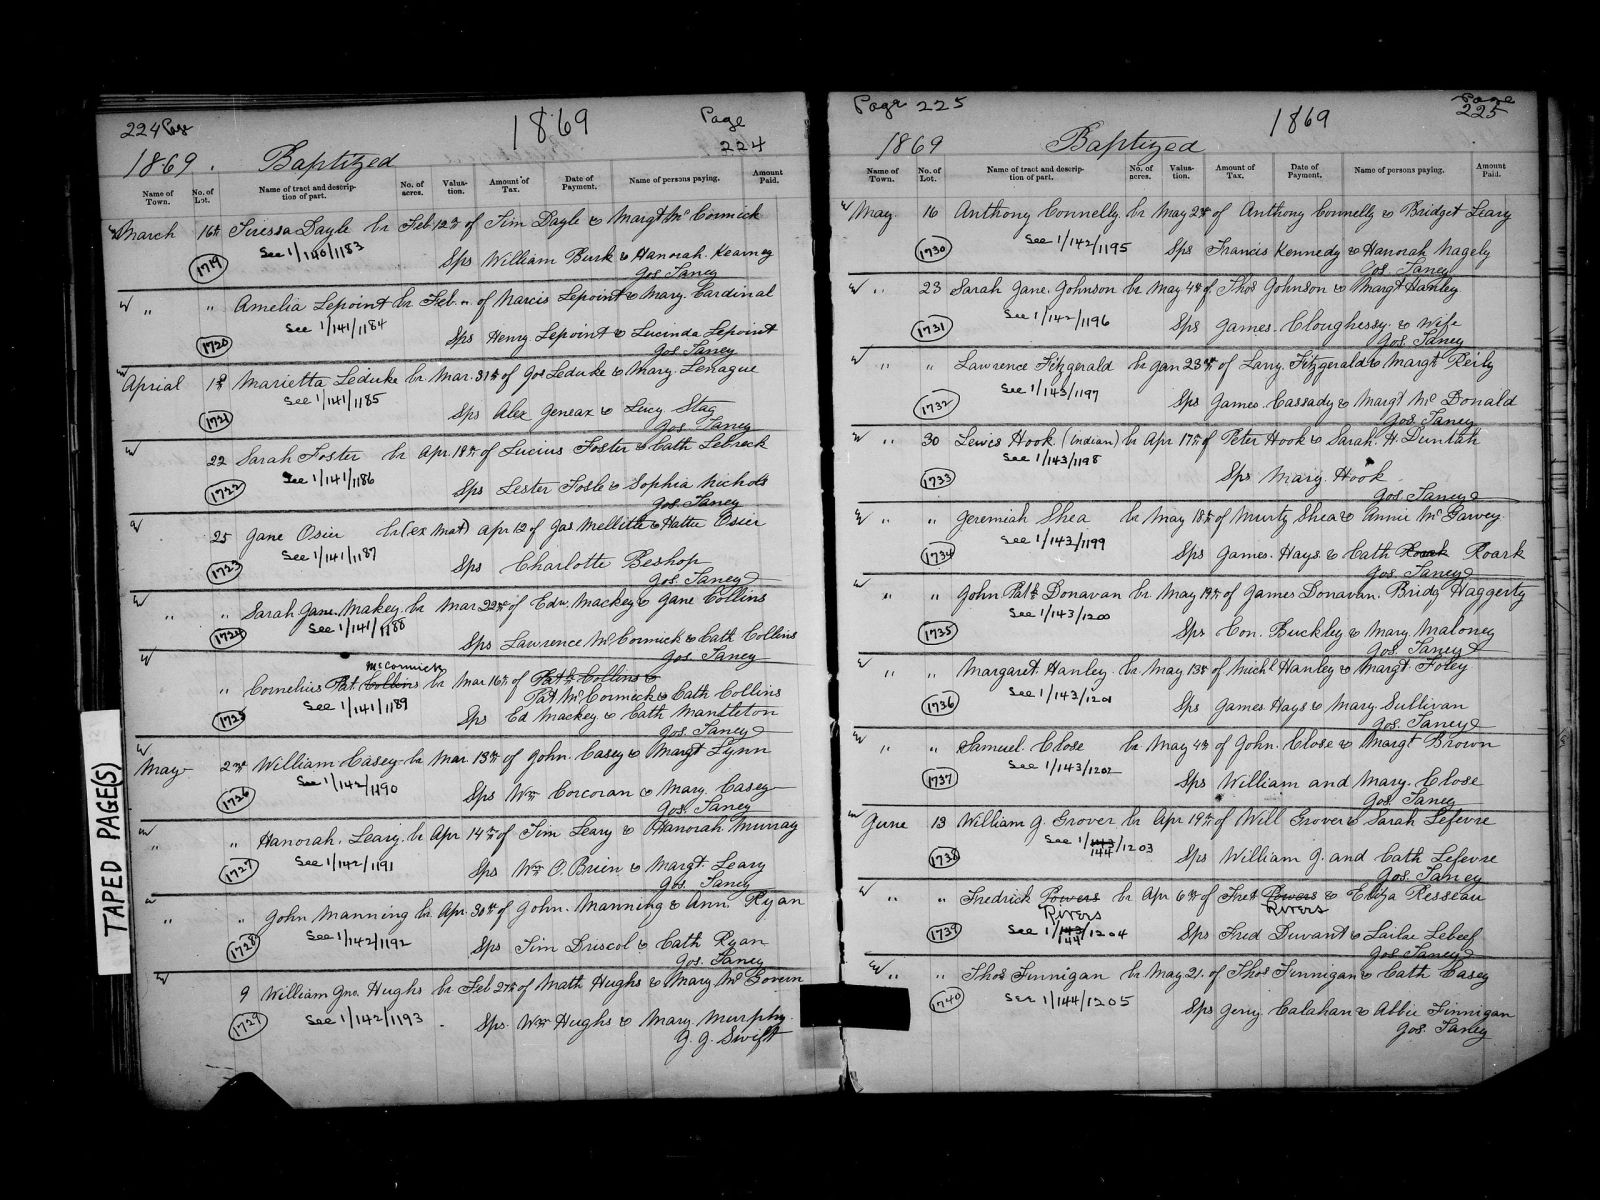 224
1869
Page
224
1869. Baptized
Name of Town. No. of Lot. Name of tract and description of part. No. of acres. Valuation. Amount of Tax. Date of Payment. Name of persons paying. Amount Paid.
March 16th Teressa Dayle br Feb 12th of Tim Dayle & Margt McCormick
See 1/140/1183
Sps William Burk & Hanorah Kearney
1719
Jos. Taney
" " Amelia Lepoint br Feb " of Narcis Lepoint & Mary Cardinal
See 1/141/1184
1720 Sps Henry Lepoint & Lucinda Lepoint
Jos. Taney
Aprial 1st Marietta Leduke br Mar. 31st of Jos Leduke & Mary Lenague
See 1/141/1185
1721 Sps Alex Geneax & Lucy Stag
Jos. Taney
22 Sarah Foster br Apr. 18th of Lucius Foster & Cath Lebreck
See 1/141/1186
1722 Sps Lester Fosle & Sophia Nichols
Jos. Taney
25 Jane Osier br (ex Mat) Apr 12 of Jas Mellitte & Hatte Osier
See 1/141/1187
1723 Sps Charlotte Beshop
Jos. Taney
" " Sarah Jane Makey br Mar 22nd of Edw. Mackey & Jane Collins
See 1/141/1188
1724 Sps Lawrence McCormick & Cath Collins
Jos. Taney
McCormick
" Cornelius Pat. Collins br Mar 16th of Patk Collins &
Pat McCormick & Cath Collins
See 1/141/1189
1725 Sps Ed Mackey & Cath Mantleton
Jos. Taney
May 2nd William Casey br Mar 13th of John Casey & Margt Lynn
See 1/142/1190
1726 Sps Wm Corcoran & Mary Casey
Jos. Taney
" " Hanorah Leary br Apr 14th of Tim Leary & Hanorah Murray
See 1/142/1191
1727 Sps Wm O.Brien & Margt. Leary
Jos. Taney
" " John Manning br Apr 30th of John Manning & Ann Ryan
See 1/142/1192
1728 Sps Tim Driscol & Cath Ryan
Jos. Taney
9 William Jno. Hughs br Feb 27th of Math Hughs & Mary McGovern
See 1/142/1193
1729 Sps Wm Hughs & Mary Murphy
J. J. Swift
TAPED PAGE(S)
Page 225
1869
Page
225
1869 Baptized
Name of Town. No. of Lot. Name of tract and description of part. No. of acres. Valuation. Amount of Tax. Date of Payment. Name of persons paying. Amount Paid.
May 16 Anthony Connelly br May 2nd of Anthony Connelly & Bridget Leary
See 1/142/1195
1730 Sps Francis Kennedy & Hanorah Nagely
Jos. Taney
" 23 Sarah Jane Johnson br May 4th of Thos Johnson & Margt Hanley
See 1/142/1196
1731 Sps James Cloughessy & Wife
Jos Taney
" " Lawrence Fitzgerald br Jan 23rd of Larry Fitzgerald & Margt Reily
See 1/143/1197
1732 Sps James Cassady & Margt McDonald
Jos Taney
" 30 Lewis Hook (Indian) br Apr 17th of Peter Hook & Sarah H Duntah
See 1/143/1198
1733 Sps Mary Hook
Jos Taney
" " Jeremiah Shea br May 18th of Murty Shea & Annie McGarvey
See 1/143/1199
1734 Sps James Hays & Cath Roark Roark
Jos Taney
" " John Patk Donavan br May 19th of James Donavan. Bridg Haggerty
See 1/143/1200
1735 Sps Con. Buckley & Mary Maloney
Jos Taney
" " Margaret Hanley br May 13th of Michl Hanley & Margt. Foley
See 1/143/1201
1736 Sps James Hays & Mary Sullivan
Jos Taney
" " Samuel Close br May 4th of John Close & Margt Brown
See 1/143/1202
1737 Sps William and Mary Close
Jos Taney
June 13 William J. Grover br Apr 19th of Will Grover & Sarah Lefevre
See 1/143/1203
144
1738 Sps William J. and Cath Lefevre
Jos. Taney
" Fredrick Powers br Apr 6th of Fret Powers & Eliza Resseau
Rivers Rivers
See 1/143/1204
144
1739 Sps Fred Duvant & Lailae Lebeef
Jos Taney
" " Thos Finnigan br May 21. of Thos Finnigan & Cath Casey
See 1/144/1205
1740 Sps Jerry Calahan & Abbie Finnigan
Jos. Taney